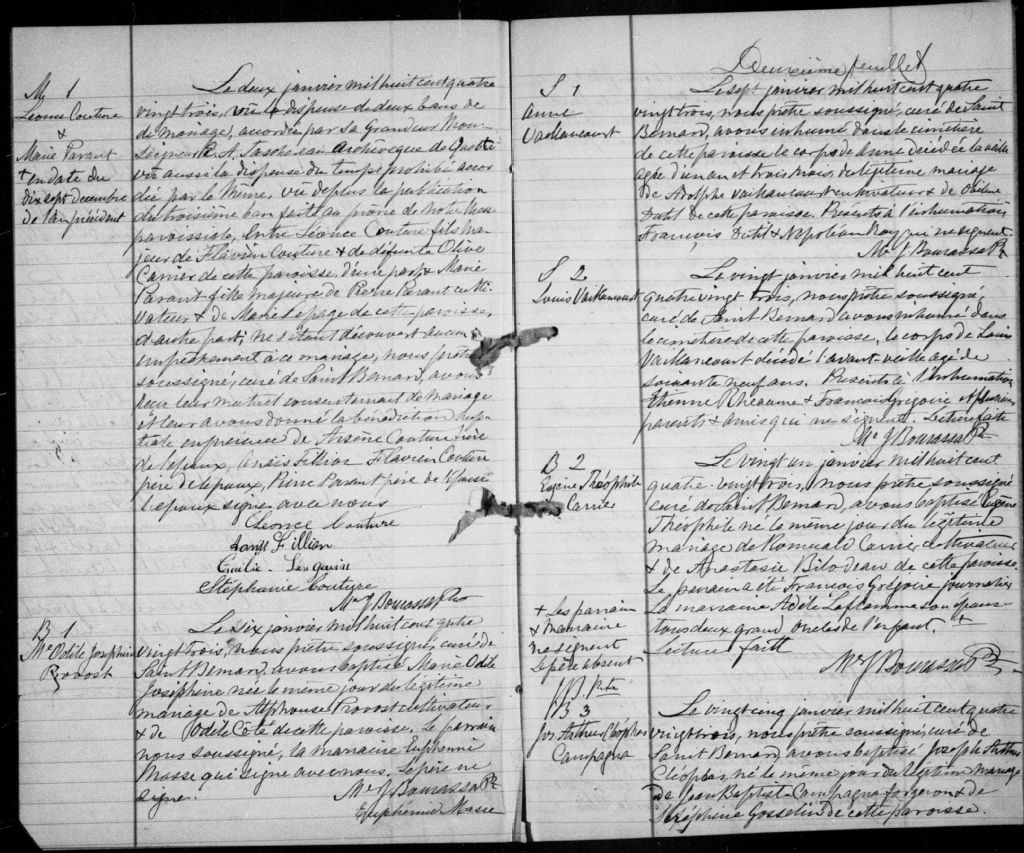 M 1
Léonce Couture
&
Marie Parant
+ en date du
dix sept decembre
de l'an précédent
Le deux janvier mil huit cent quatre
vingt trois, vu la dispense de deux bans de
de mariage, accordée par Sa Grandeur Mon-
seigneur E. A. Taschereau Archevêque de Québec
vû aussi la dispense du temps prohibé accor
dée par le même, vu de plus la publication
du troisième ban faite au prône de notre Messe
paroissiale, Entre Léonce Couture fils ma
jeur de Flavien Couture & de défunte Olive
Carrier de cette paroisse, d'une part, & Marie
Parant fille majeure de Pierre Parant culti-
vateur & de Marie Lepage de cette paroisse,
d'autre part; ne s'étant découvert aucun
empêchement à ce mariage, nous prêtre
soussigné, curé de Saint Bernard, avons
reçu leur mutuel consentement de mariage
et leur avons donné la bénédiction nup-
tiale en présence de Arsène Couture frère
de l'époux, Anaïs Fillion Flavien Couture
père de l'époux, Pierre Parant père de l'épouse
L'époux signe avec nous
Léonce Couture
Anaïs Fillion
Emilie
Stéphanie Couture
Mr J Bourassa Ptre
B 1
Me Odile Joséphine
Provost
Le six janvier mil huit cent quatre
vingt trois, nous prêtre soussigné, curé de
Saint Bernard, avons baptisé Marie Odile
Joséphine née le même jour du légitime
mariage de Alphonse Provost cultivateur
& de Odile Côté de cette paroisse. Le parrain
nous soussigné, la marraine Euphémie
Masse qui signe avec nous. Le père ne
signe.
Mr J Bourassa Ptre
Euphémie Masse
Deuxième feuillet
S 1
Anne
Vaillancourt
Le sept janvier mil huit cent quatre
vingt trois, nous prêtre soussigné, curé de Saint
Bernard, avons inhumé dans le cimetière
de cette paroisse le corps de Anne décédée la veille
agée d'un an et trois mois, du légitime mariage
de Adolphe Vaillancourt cultivateur & de
Dutil de cette paroisse. Présents à l'inhumation
François Dutil & Napoléon Roy qui ne signent
Mr J Bourassa Ptre
S 2
Louis Vaillancourt
Le vingt janvier mil huit cent
quatre vingt trois, nous prêtre soussigné,
curé de Saint Bernard avons inhumé dans
le cimetière de cette paroisse, le corps de Louis
Vaillancourt décédé l'avant-veille agé de
soixante neuf ans. Présents à l'inhumation
Etienne Rhéaume & François Grégoire & plusieurs
parents & amis qui ne signent. Lecture faite
Mr J Bourassa Ptre
B 2
Eugène Théophile
Carrier
Le vingt un janvier mil huit cent
quatre-vingt trois, nous prêtre soussigné
curé de Saint Bernard, avons baptisé Eugène
Théophile né le même jour du légitime
mariage de Romuald Carrier cultivateur
& de Anastasie Bilodeau de cette paroisse.
Le parrain a été François Grégoire journalier
La marraine Adèle Laflamme son épouse
tous deux grand oncles de l'enfant. +
Lecture faite
Mr J Bourassa Ptre
+ Les parrain
& marraine
ne signent
le père absent
B 3
Jos. Arthur Cléophas
Campagna
Le vingt cinq janvier mil huit cent quatre
vingt trois, nous prêtre soussigné, curé de
Saint Bernard, avons baptisé Joseph Arthur
Cléophas, né le même jour du légitime mariage
de Jean Baptiste Campagna forgeron & de
Gosselin de cette paroisse.